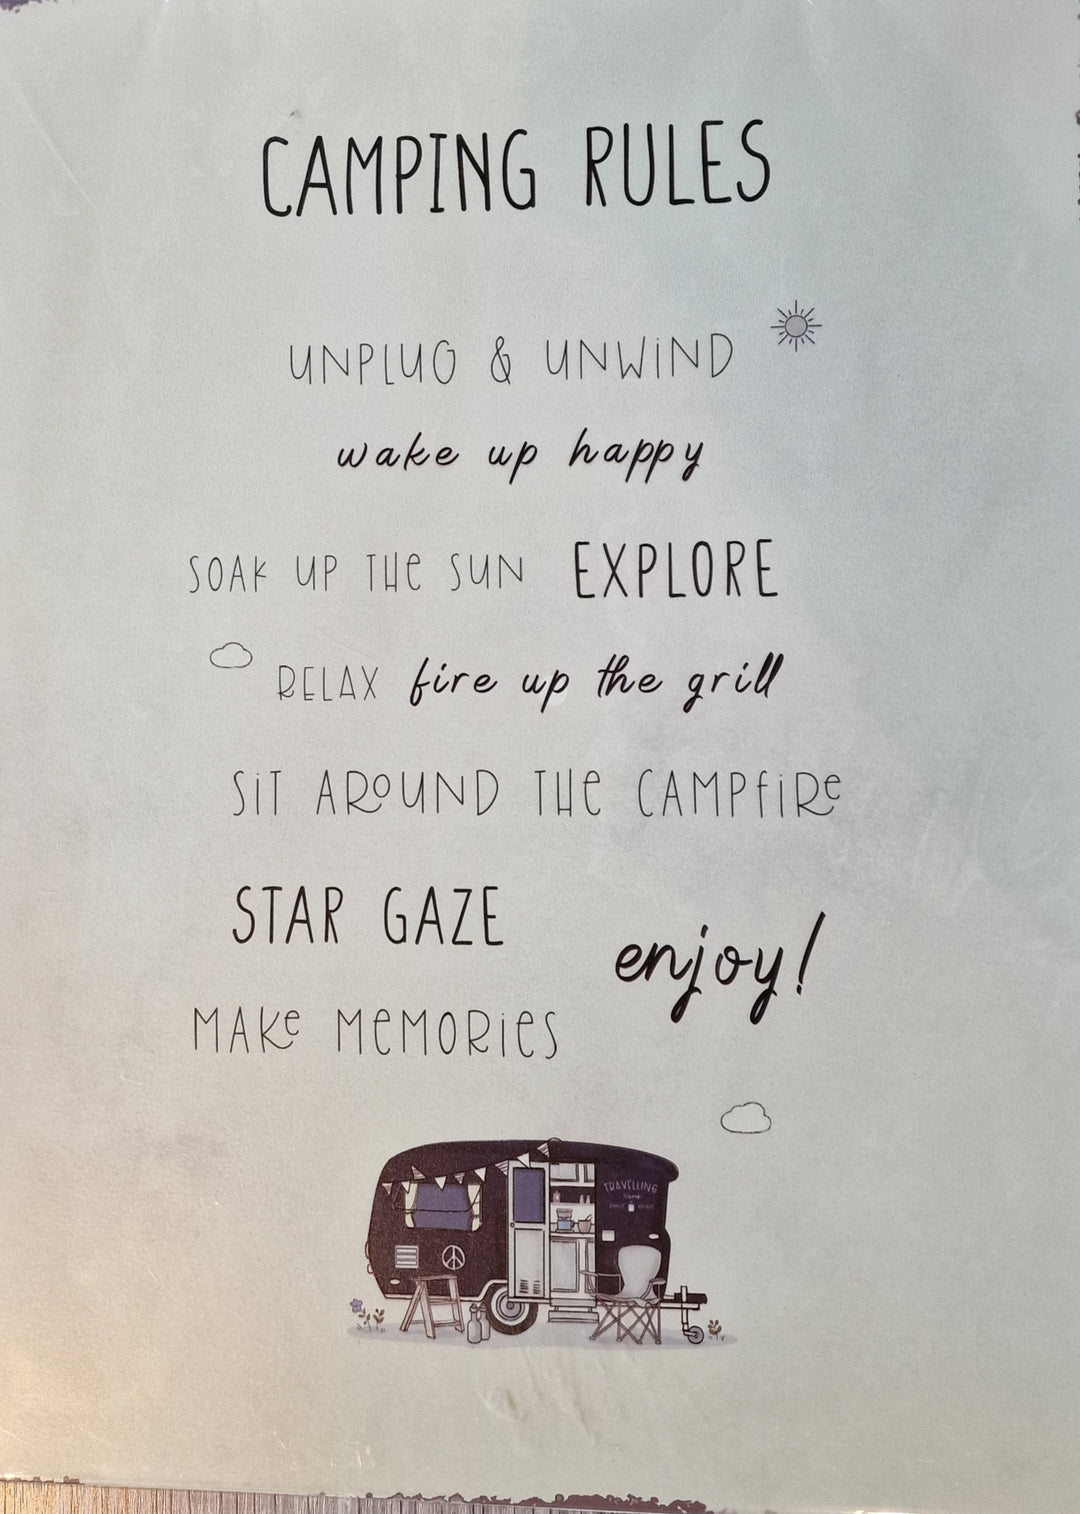 CAMPING RULES
UNPLUG & UNWiND
wake up happy
SOAK UP THe SUN EXPLORE
RELAX fire up the grill
SiT AROUND THe CAMPfiRe
STAR GAZE
enjoy!
MAKe MeMORieS
TRAVELLING